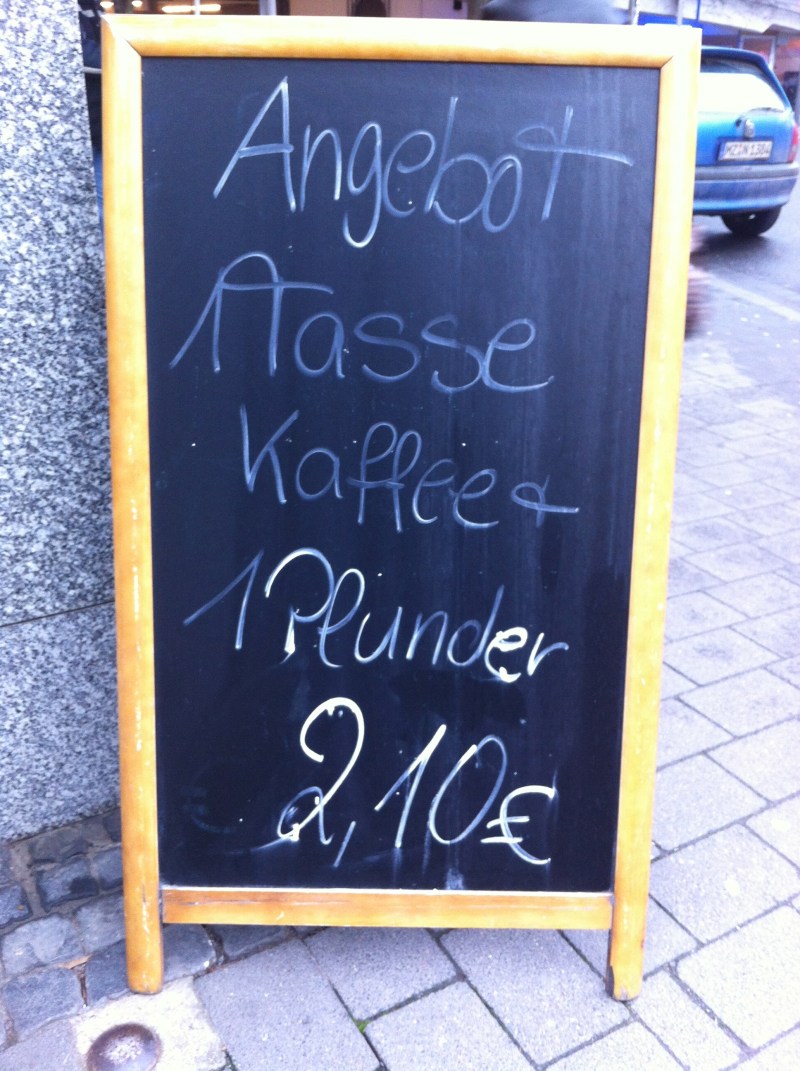 Angebot
1 Tasse
Kaffee &
1 Plunder
2,10 €